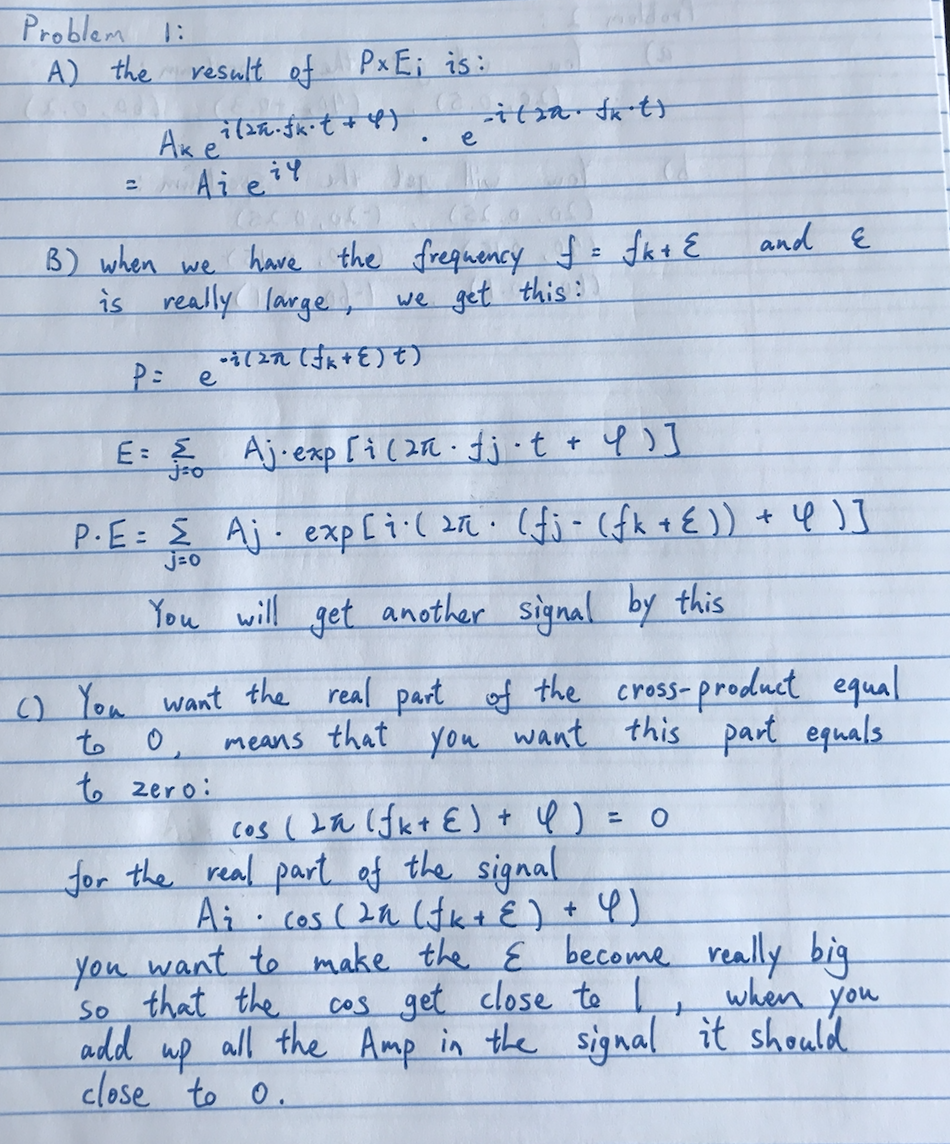 Problem 1:
A) the result of P×Ei is:
Ak e^i(2π·fk·t + φ) · e^-i(2π·fk·t)
= Ai e^iφ
B) when we have the frequency f = fk+ε and ε
is really large, we get this:
P= e^-i(2π(fk+ε)t)
E= Σ j=0 Aj·exp[i(2π·fj·t + φ)]
P·E= Σ j=0 Aj·exp[i·(2π·(fj-(fk+ε)) + φ)]
You will get another signal by this
C) You want the real part of the cross-product equal
to 0, means that you want this part equals
to zero:
cos(2π(fk+ε) + φ) = 0
for the real part of the signal
Ai·cos(2π(fk+ε) + φ)
you want to make the ε become really big
so that the cos get close to 1, when you
add up all the Amp in the signal it should
close to 0.